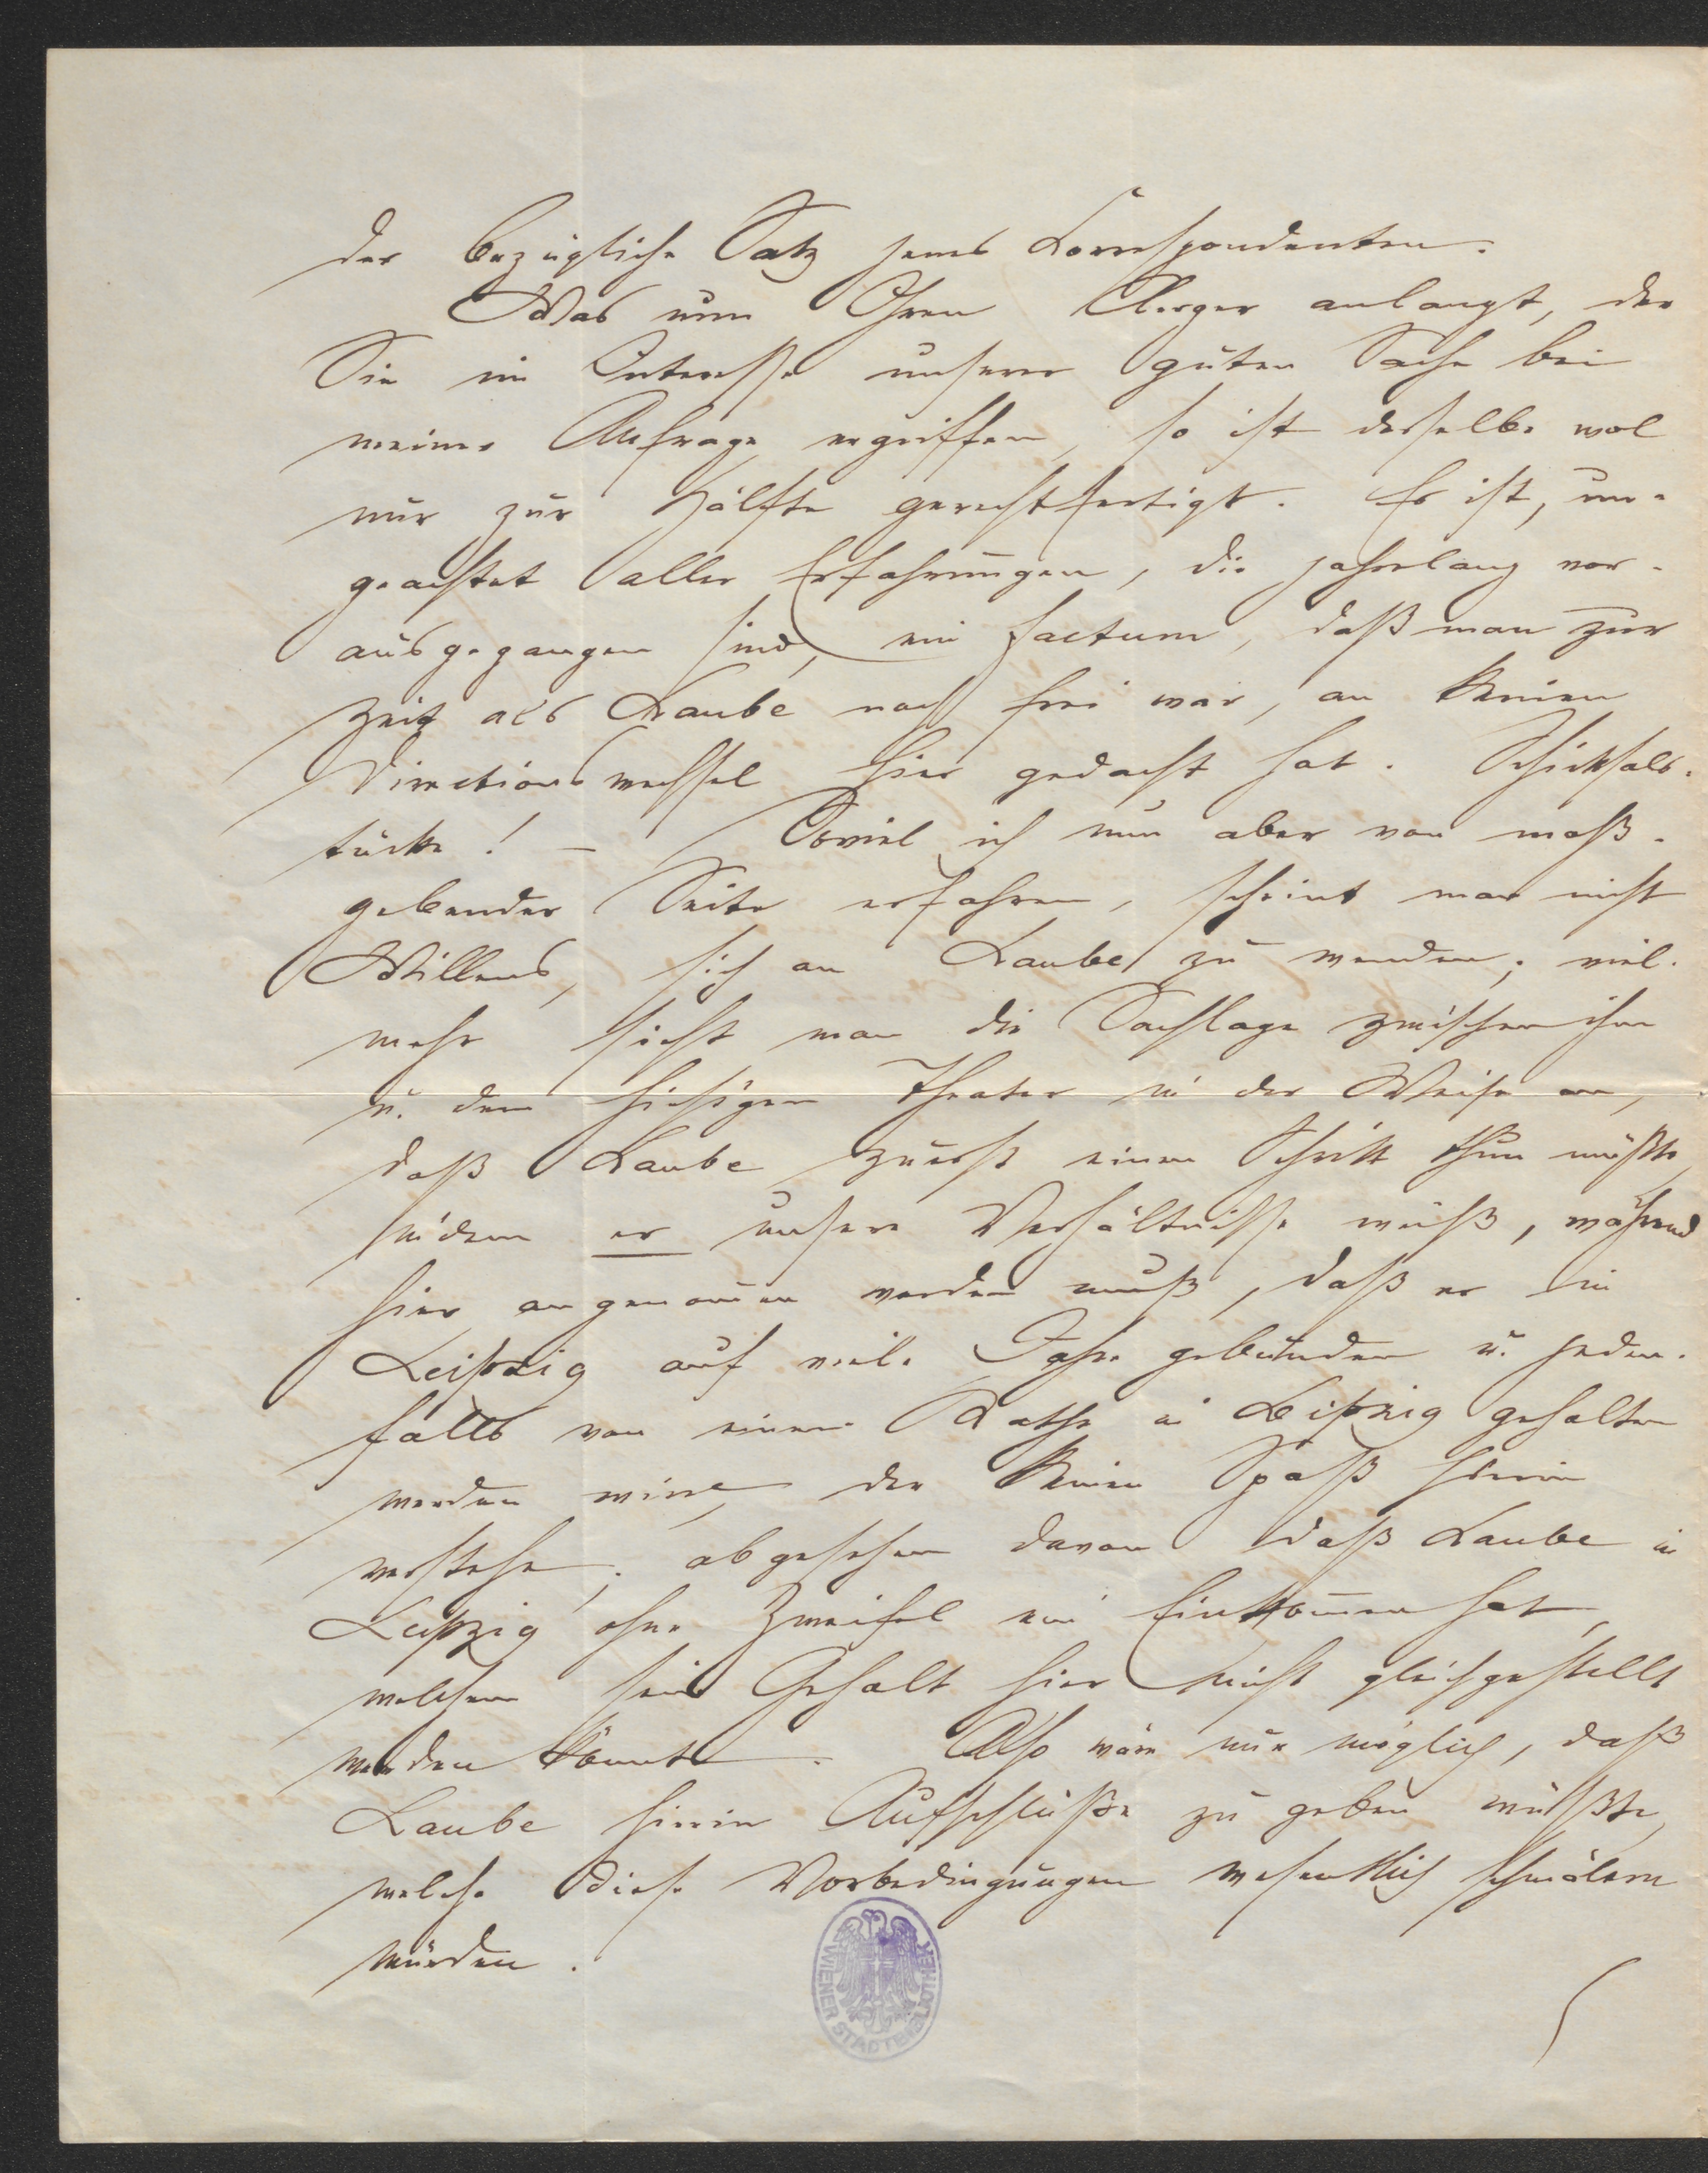 der bezügliche Satz jenes Korrespondenten.
Was nun Ihren Aerger anlangt, der
Sie im Interesse unserer guten Sache bei
meiner Anfrage ergriffen, so ist derselbe wol
nur zur Hälfte gerechtfertigt. Es ist, un-
geachtet aller Erfahrungen, die jahrelang vor-
ausgegangen sind, ein Factum, daß man zur
Zeit als Laube noch frei war, an keinen
Directionswechsel hier gedacht hat. Schicksals-
tücke! – Soviel ich nun aber von maß-
gebender Seite erfahren, scheint man nicht
Willens, sich an Laube zu wenden; viel-
mehr sieht man die Sachlage zwischen ihm
u. dem hiesigen Theater in der Weise an,
daß Laube zuerst einen Schritt thun müßte,
indem er unsere Verhältnisse weiß, während
hier angenommen werden muß, daß er in
Leipzig auf viele Jahre gebunden u. jeden-
falls von einem Rathe in Leipzig gehalten
werden wird, der keinen Spaß hierin
verstehe; abgesehen davon daß Laube in
Leipzig ohne Zweifel ein Einkommen hat,
welchem sein Gehalt hier nicht gleichgestellt
werden könnte. Also wäre nur möglich, daß
Laube hierin Aufschlüsse zu geben wüßte,
welche diese Vorbedingungen wesentlich schmälern
würden.
WIENER STADTBIBLIOTHEK